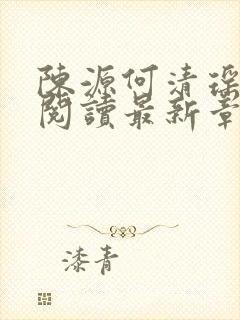 陳源何清瑤
閱讀最新章
漆青